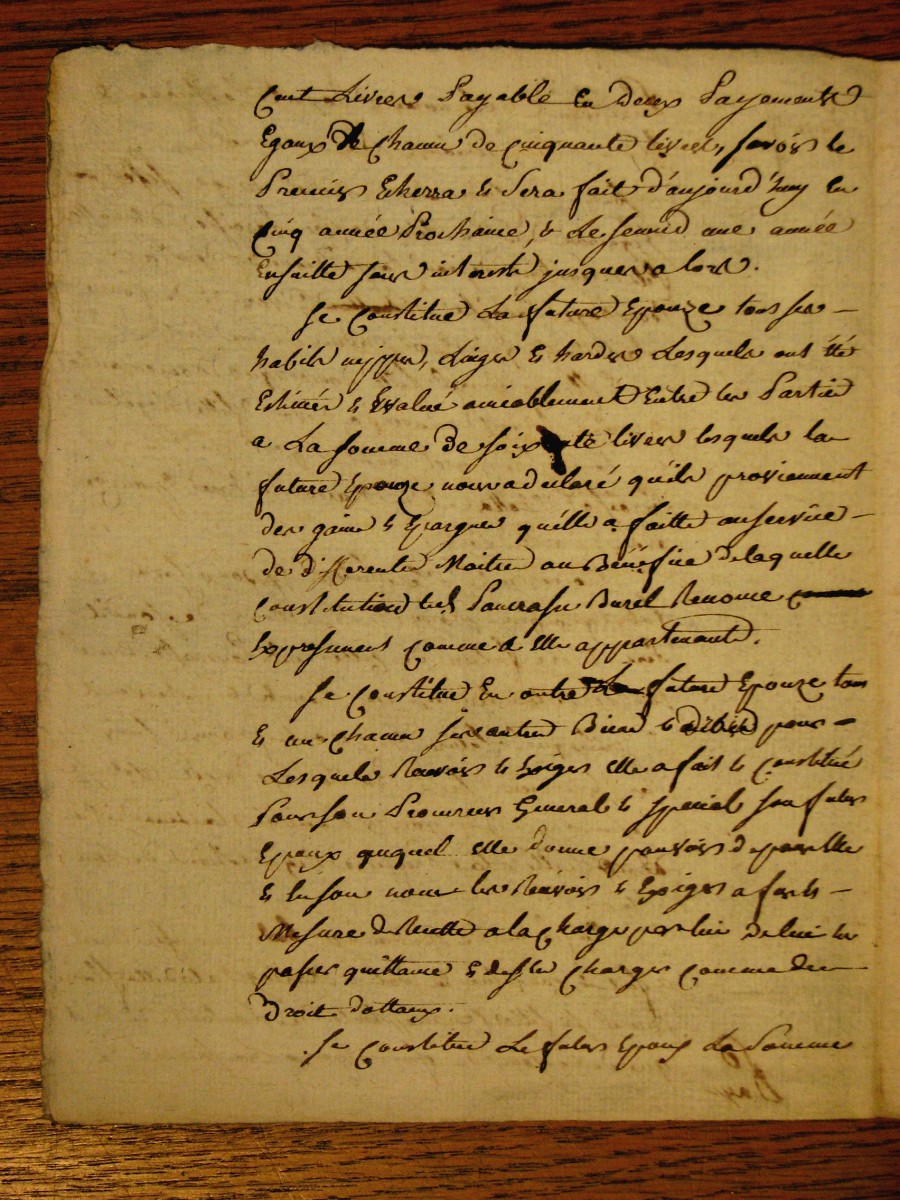 Cent Livres Payable En deux Payements
Egaux de Chacun de Cinquante livres, savoir le
Premier Echerra & Sera fait d'aujourd'huy en
Cinq année Prochaine, & Le second une année
Ensuitte sans interest jusques a lors.
Se Constitue La future Epouze tous ses
habits nippes, Linges & hardes Lesquels ont été
Estimés & Evalué amicablement Entre les Partie
a La somme de soixante livres lesquels la
future Epouze nous a declaré qu'ils proviennent
des gains & Epargnes qu'elle a faitte au service
de differents Maitre au Bénéfice de laquelle
Constitution led. Burel Renonce
Expressement comme a elle appartenants.
Se Constitue En outre La future Epouze tous
& un Chacun ses autres Biens & droits pour
Lesquels Recevoir & Exiger elle a fait & Constitué
Pour son Procureur General & special son futur
Epoux auquel elle donne pouvoir de pour elle
& En son nom les Recevoir & Exiger a fur &
Mesure de Rentte a la Charge par lui de lui les
passer quittance & de Charger comme de
Droit dottaux.
Se Constitue Le futur Epoux La Somme